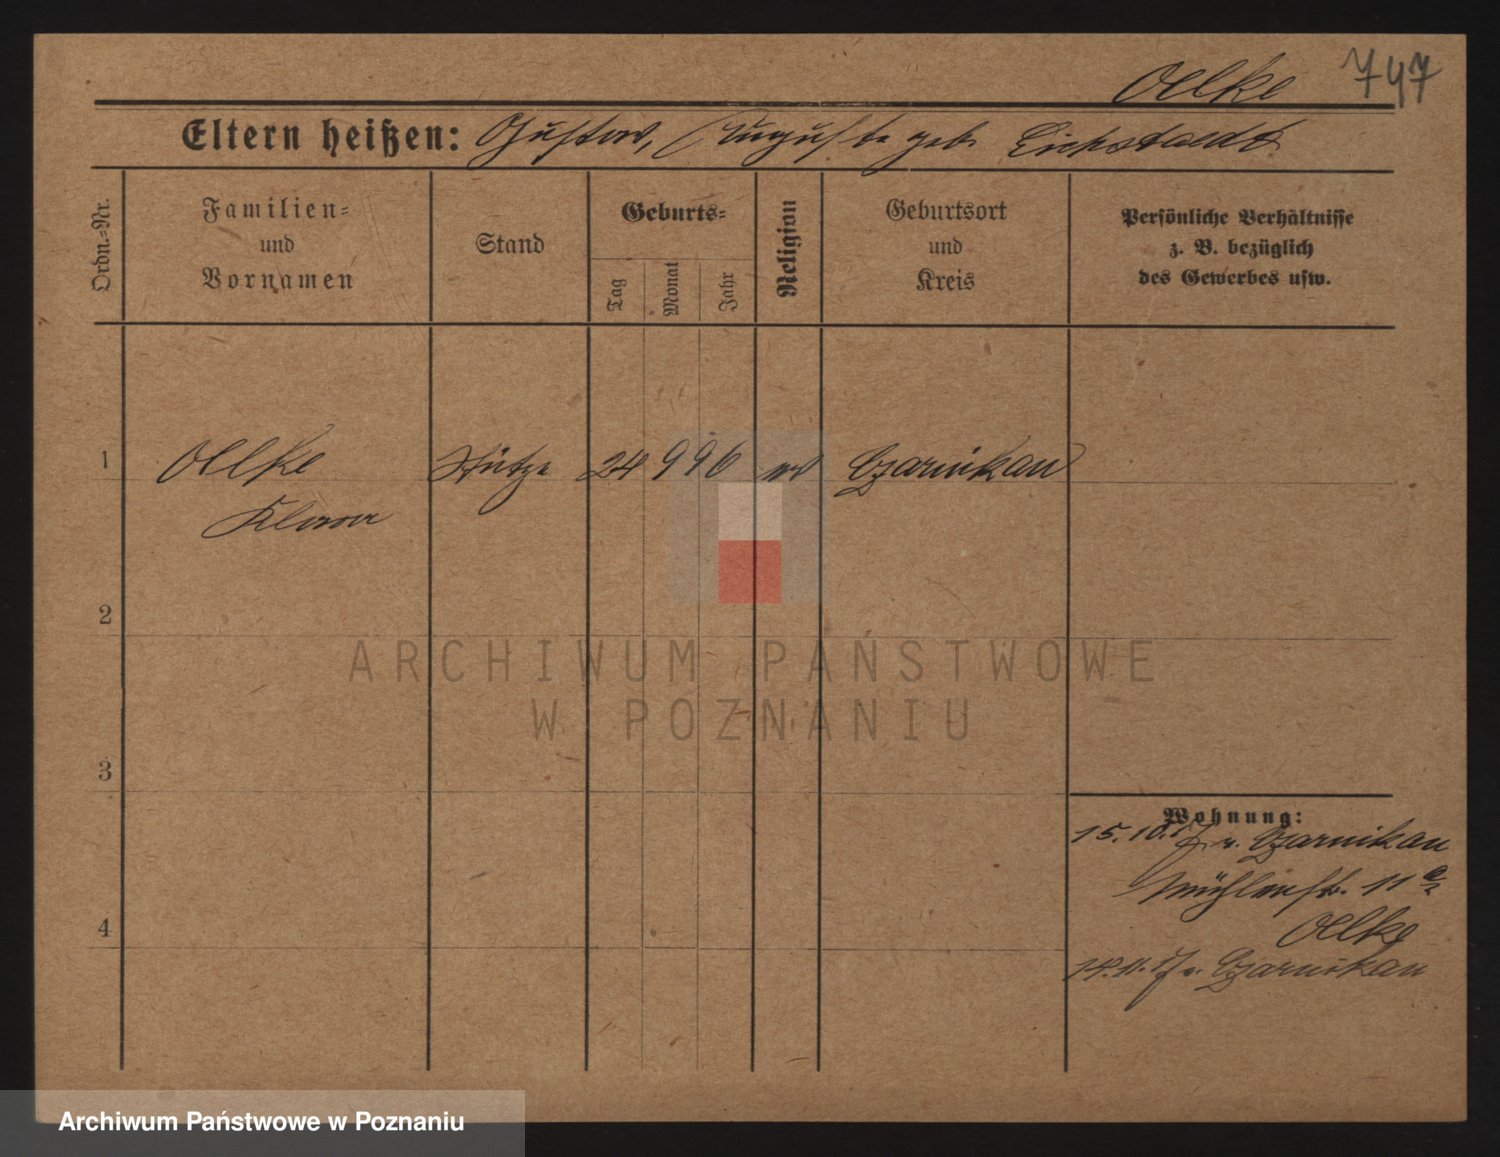 Oelke 747
Eltern heißen: Gustav, Auguste geb. Eichstaedt
Ordn.=Nr.
Familien=
und
Vornamen
Stand
Geburts=
Tag
Monat
Jahr
Religion
Geburtsort
und
Kreis
Persönliche Verhältnisse
z. B. bezüglich
des Gewerbes usw.
1 Oelke Stütze 24 9 96 ev Czarnikau
Klara
2
3
4
Wohnung:
15.10.17 v. Czarnikau
Mühlenstr. 11
Oelke
14.11.17 n. Czarnikau
ARCHIWUM PAŃSTWOWE
W POZNANIU
Archiwum Państwowe w Poznaniu